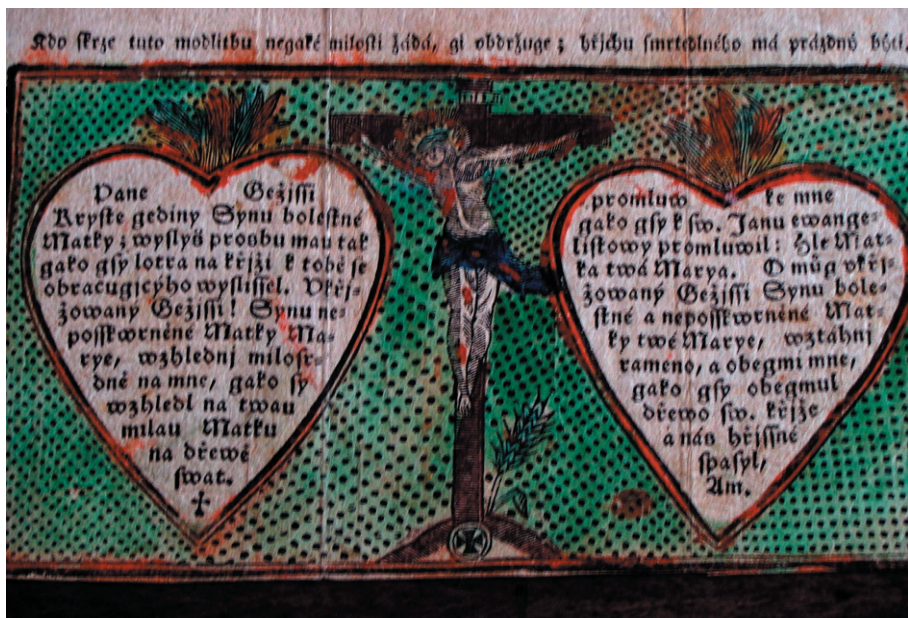 Kdo skrze tuto modlitbu negaké milosti žádá, gi obdržuge; hřjchu smrtedlného má prázdný býti.
Pane Gežissi
Kryste gediny Synu bolestné
Matky; wyslyš prosbu mau tak
gako gsy lotra na křjži k tobě se
obracugjcýho wyslissel. Vkřj-
žowaný Gežissi! Synu ne-
posskwrněné Matky Ma-
rye, wzhlednj milosr-
dně na mne, gako sy
wzhledl na twau
milau Matku
na dřewě
swat.
✝
promluw ke mne
gako gsy k sw. Janu ewange-
listowy promluwil: Hle Mat-
ka twá Marya. O můg vkřj-
žowaný Gežissi Synu bole-
stné a neposskwrněné Mat-
ky twé Marye, wztáhni
rameno, a obegmi mne,
gako gsy obegmul
dřewo sw. křjže
a nás hřjssné
spasyl,
Am.